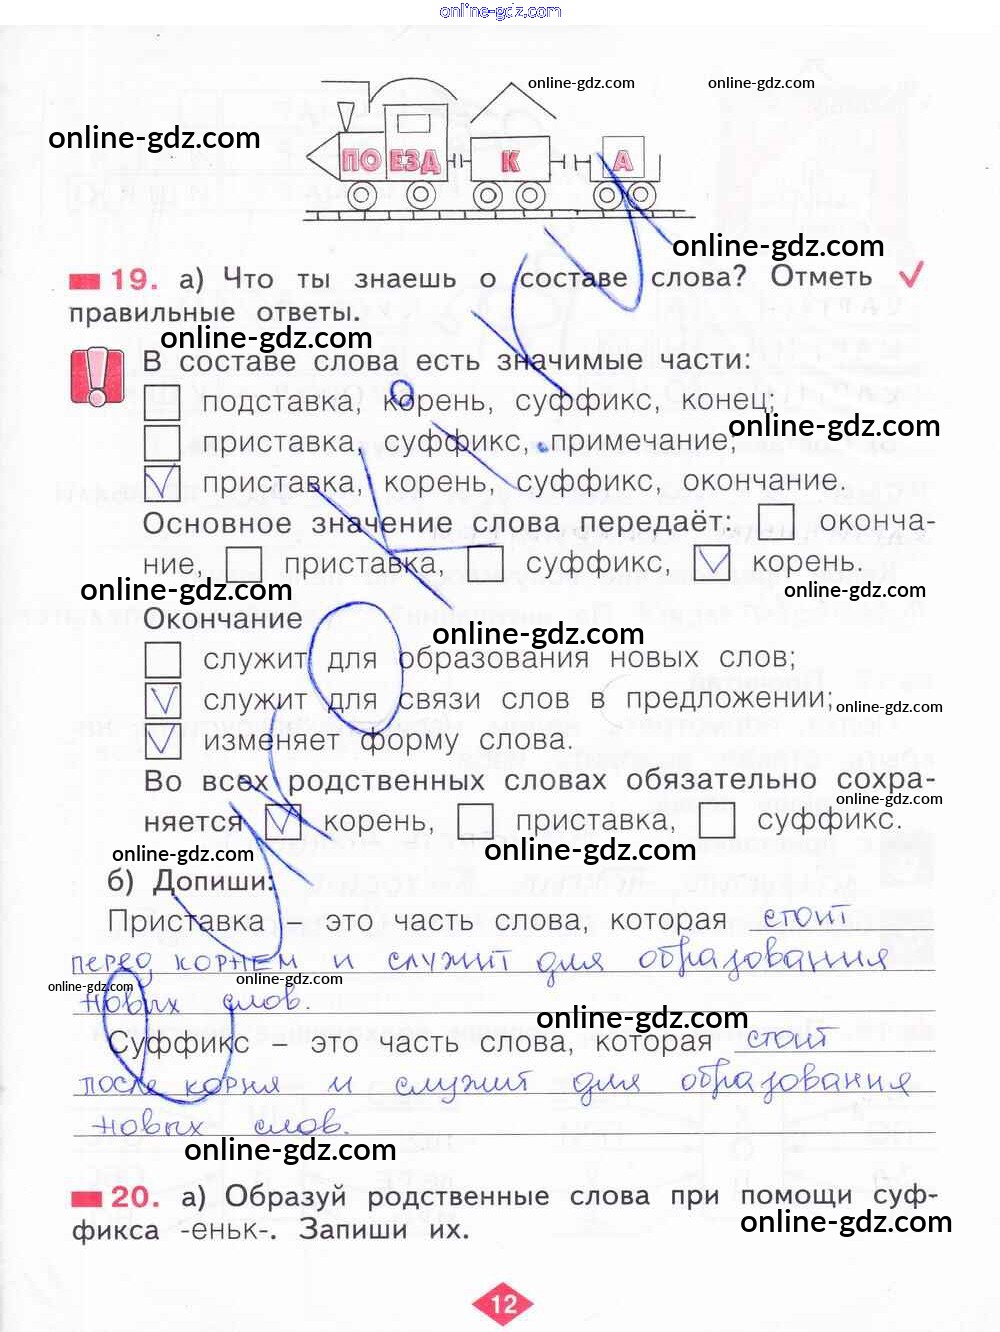 online-gdz.com
online-gdz.com online-gdz.com
online-gdz.com
ПО ЕЗД К А
online-gdz.com
19. а) Что ты знаешь о составе слова? Отметь ✓
правильные ответы.
online-gdz.com
В составе слова есть значимые части:
подставка, корень, суффикс, конец;
online-gdz.com
приставка, суффикс, примечание;
приставка, корень, суффикс, окончание.
Основное значение слова передаёт: оконча-
ние, приставка, суффикс, корень.
online-gdz.com online-gdz.com
Окончание
online-gdz.com
служит для образования новых слов;
служит для связи слов в предложении;
online-gdz.com
изменяет форму слова.
Во всех родственных словах обязательно сохра-
online-gdz.com
няется корень, приставка, суффикс.
online-gdz.com online-gdz.com
б) Допиши:
Приставка – это часть слова, которая стоит
перед корнем и служит для образования
online-gdz.com online-gdz.com
новых слов.
online-gdz.com
Суффикс – это часть слова, которая стоит
после корня и служит для образования
новых слов.
online-gdz.com
20. а) Образуй родственные слова при помощи суф-
фикса -еньк-. Запиши их.
online-gdz.com
12